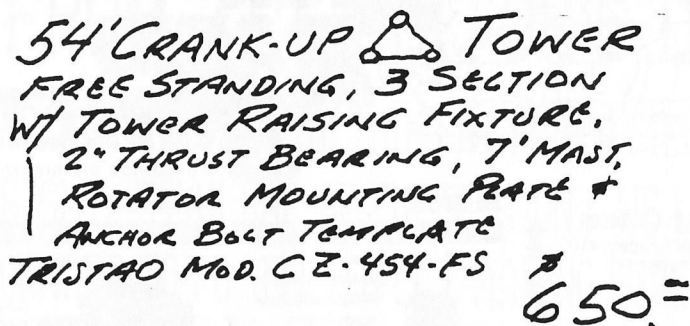 54' CRANK-UP TOWER
FREE STANDING, 3 SECTION
W/ TOWER RAISING FIXTURE,
2" THRUST BEARING, 7' MAST,
ROTATOR MOUNTING PLATE &
ANCHOR BOLT TEMPLATE
TRISTAO MOD. CZ-454-FS $
650.=